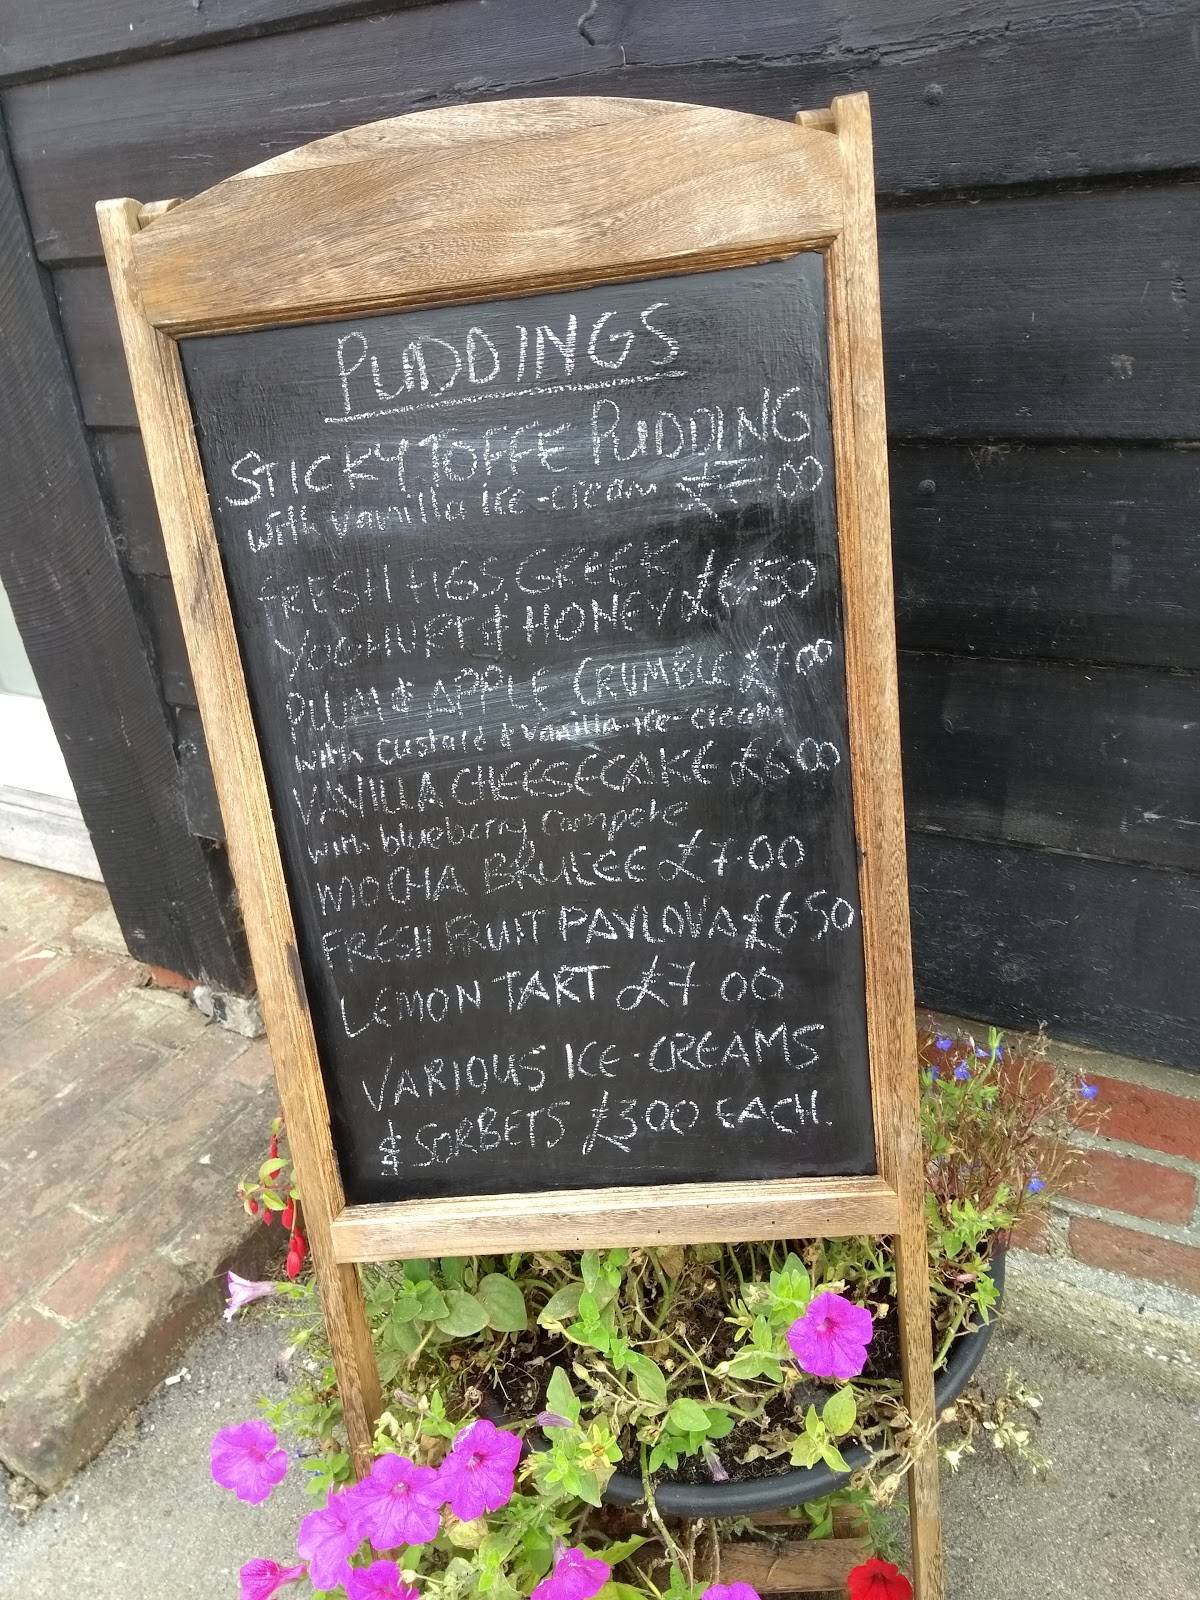 PUDDINGS
STICKY TOFFE PUDDING
with vanilla ice-cream £7.00
FRESH FIGS, GREEK
YOGHURT & HONEY £6.50
PLUM & APPLE CRUMBLE £7.00
with custard & vanilla ice-cream
VANILLA CHEESECAKE £6.00
with blueberry compote
MOCHA BRULEE £7.00
FRESH FRUIT PAVLOVA £6.50
LEMON TART £7 00
VARIOUS ICE-CREAMS
& SORBETS £3.00 EACH.